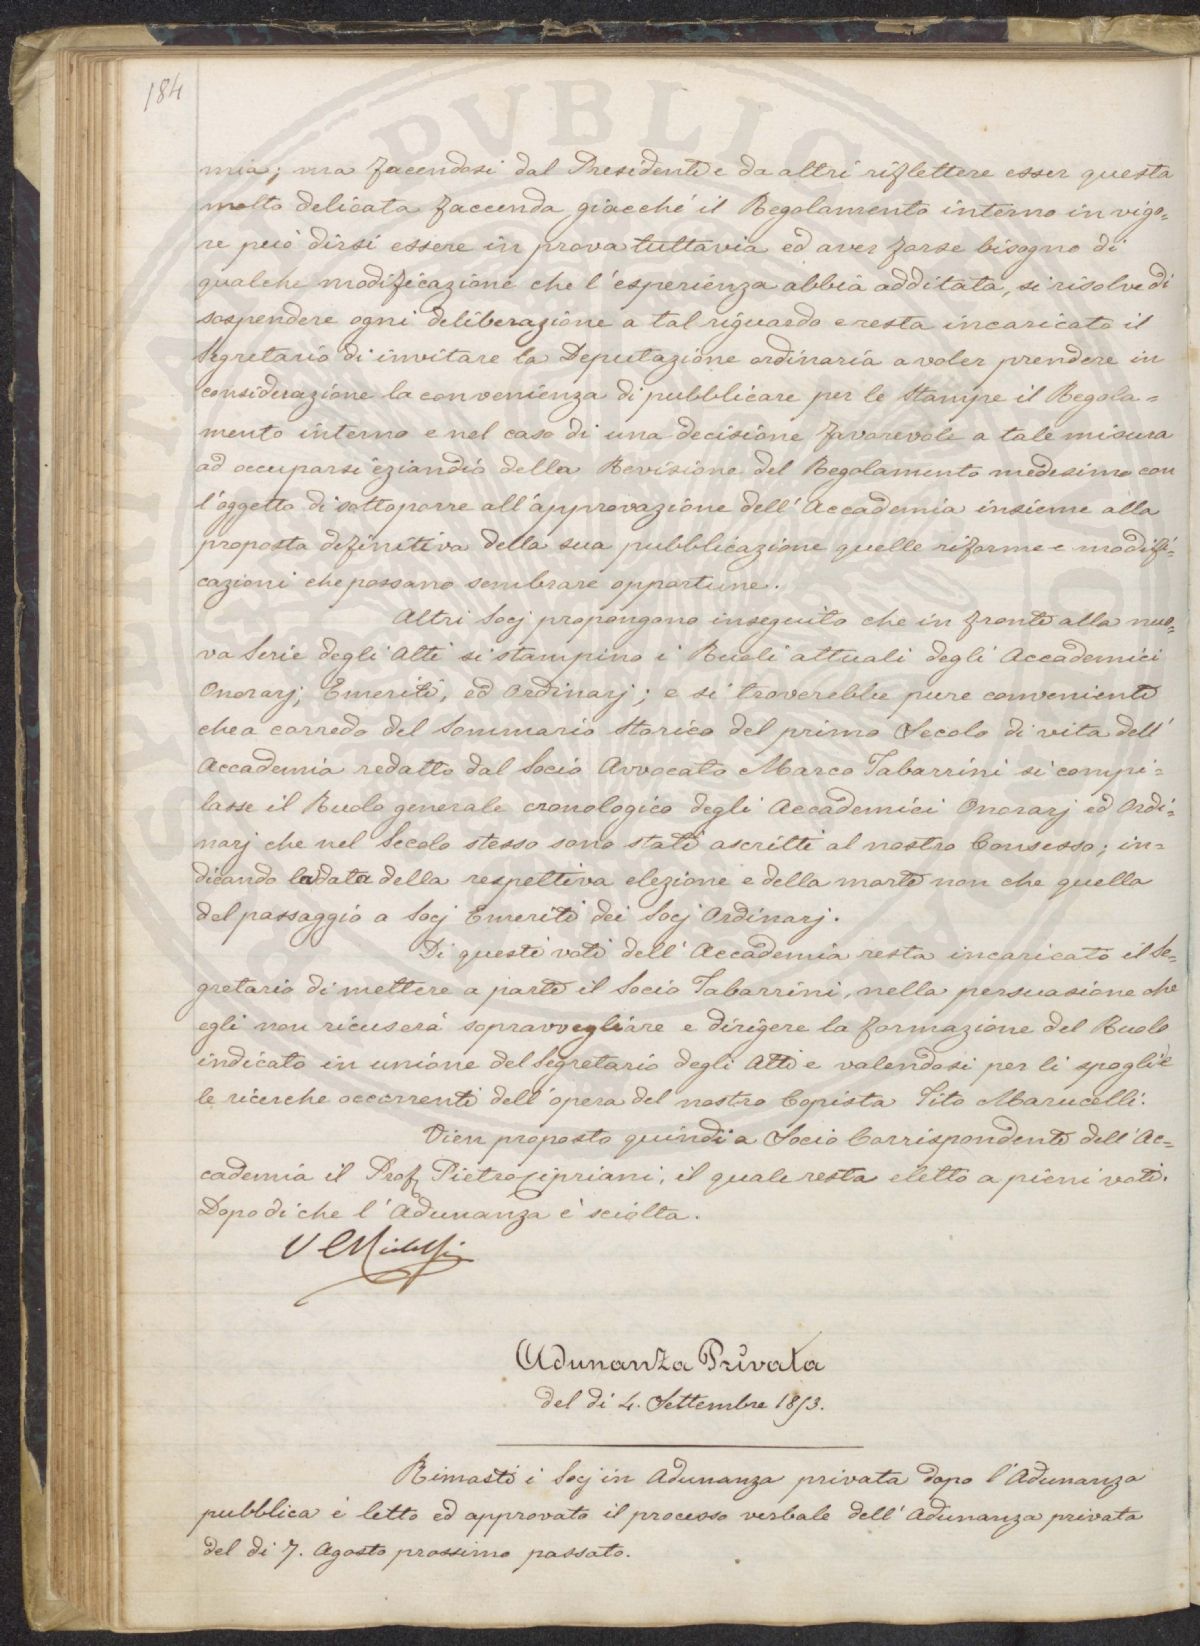 184
mia; ma facendosi dal Presidente e da altri riflettere esser questa
molto delicata faccenda giacché il Regolamento interno in vigo=
re può dirsi essere in prova tuttavia ed aver forse bisogno di
qualche modificazione che l'esperienza abbia additata, si risolve di
sospendere ogni deliberazione a tal riguardo e resta incaricato il
Segretario di invitare la Deputazione ordinaria a voler prendere in
considerazione la convenienza di pubblicare per le Stampe il Regola=
mento interno e nel caso di una decisione favorevole a tale misura
ad occuparsi eziandio della Revisione del Regolamento medesimo con
l'oggetto di sottoporre all'approvazione dell'Accademia insieme alla
proposta definitiva della sua pubblicazione quelle riforme e modifi=
cazioni che possano sembrare opportune.
Altri Socj propongono inseguito che in fronte alla nuo=
va Serie degli Atti si stampino i Ruoli attuali degli Accademici
Onorarj, Emeriti, ed Ordinarj; e si troverebbe pure conveniente
che a corredo del Sommario Storico del primo Secolo di vita dell'
Accademia redatto dal Socio Avvocato Marco Tabarrini si compi=
lasse il Ruolo generale cronologico degli Accademici Onorarj ed Ordi=
narj che nel Secolo stesso sono stati ascritti al nostro Consesso; in=
dicando la data della respettiva elezione e della morte non che quella
del passaggio a Socj Emeriti dei Socj Ordinarj.
Di questi voti dell'Accademia resta incaricato il Se=
gretario di mettere a parte il Socio Tabarrini, nella persuasione che
egli non ricuserà sopravvegliare e dirigere la formazione del Ruolo
indicato in unione del Segretario degli Atti e valendosi per li spogli e
le ricerche occorrenti dell'opera del nostro Copista Tito Marucelli.
Vien proposto quindi a Socio Corrispondente dell'Ac=
cademia il Prof. Pietro Cipriani, il quale resta eletto a pieni voti.
Dopo di che l'Adunanza è sciolta.
Adunanza Privata
del di 4. Settembre 1853.
Rimasti i Socj in Adunanza privata dopo l'Adunanza
pubblica è letto ed approvato il processo verbale dell'Adunanza privata
del di 7. Agosto prossimo passato.